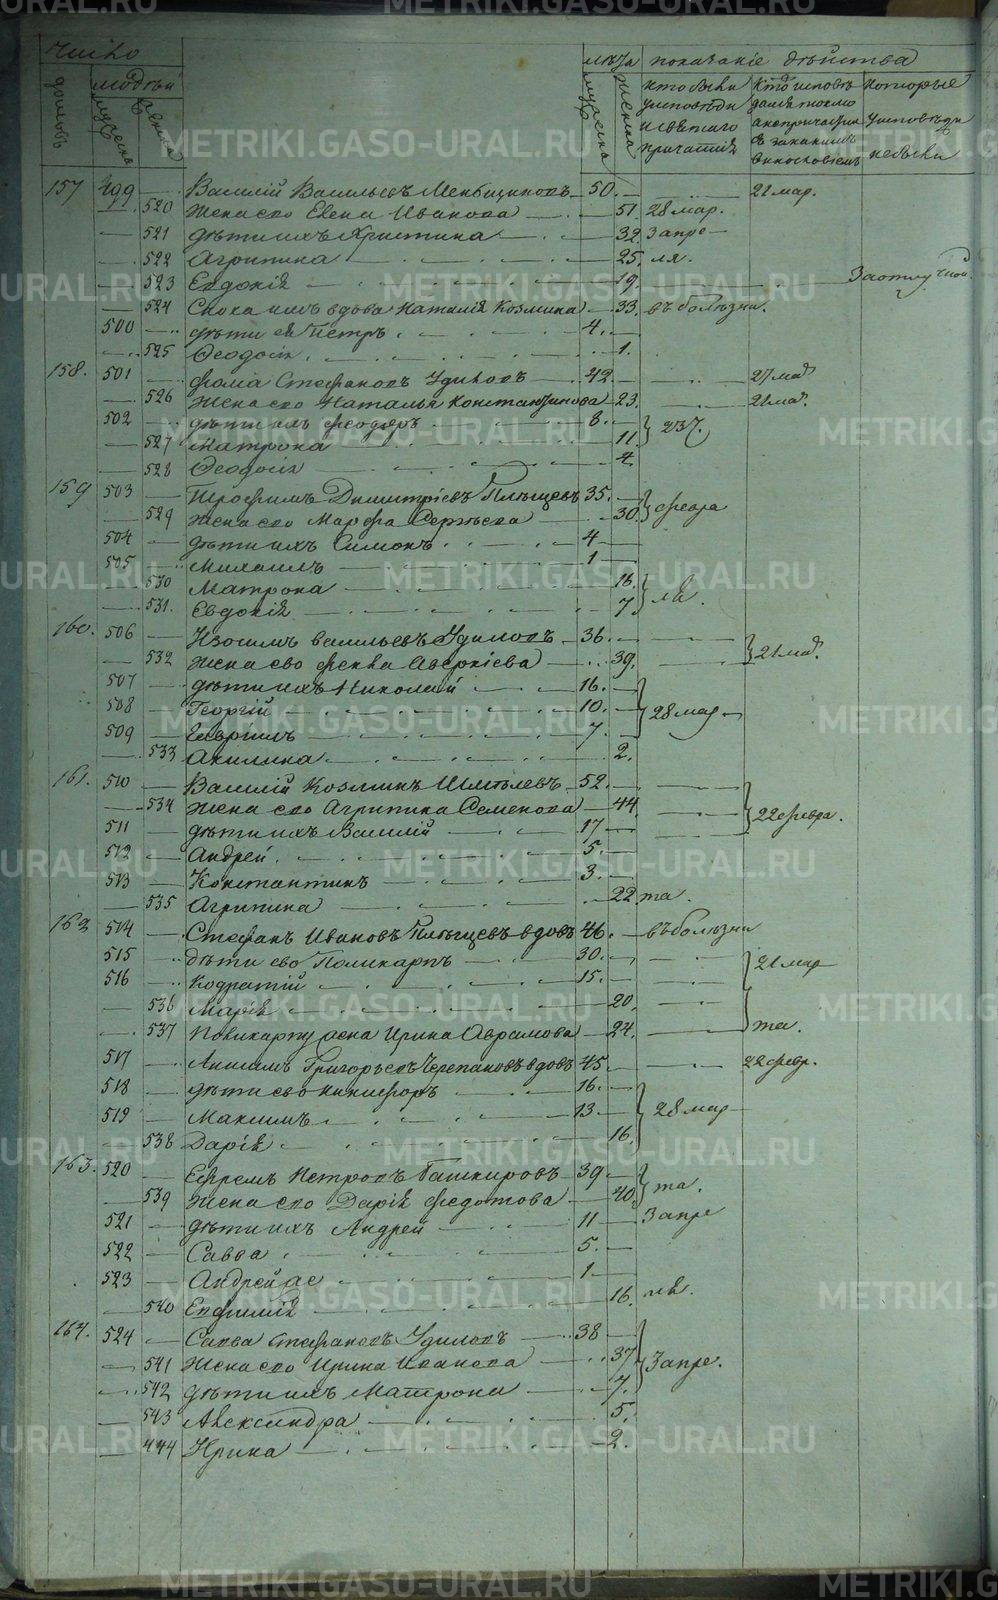 число лѣта показаніе дѣйства
домовъ людей мужеска женска мужеска женска кто были у исповѣди и святаго причастія которые у исповѣди не были
157 499 — Василій Васильевъ Меньщиковъ 50. — 21 мар.
520 Жена его Елена Иванова — 51 28 мар.
521 дѣти ихъ Христина — 32 3 апре
522 Агрипина — 25. ля.
523 Евдокія — 19. За отлучкою
524 Сноха ихъ вдова Наталія Козмина — 33. въ болѣзни.
500 дѣти ея Петръ. 4.
525 Ѳеодосія. 1.
158. 501 Фома Стефановъ Удиловъ — 42 27 мар
526 Жена его Наталья Константинова 23. 21 мар.
502 дѣти ихъ Феодоръ 8.
527 Матрона 11.
528 Ѳеодосія 4.
159 503 Трофимъ Димитріевъ Плѣщевъ 35. февра
529 Жена его Марфа Сергѣева — 30
504 дѣти ихъ Симонъ 4
505 Михаилъ 1
530 Матрона 16.
531. Евдокія 7. ля.
160. 506 Изосимъ Васильевъ Удиловъ 36.
532 Жена его Фекла Аверкіева 39. 21 мар.
507 дѣти ихъ Николай 16.
508 Георгій 10. 28 мар
509 Гавріилъ 7.
533 Акилина 2.
161. 510 Василій Козминъ Шмелевъ 52.
534 Жена его Агрипина Семенова 44. 22 февра.
511 дѣти ихъ Василій 17
512 Андрей. 5.
513 Константинъ 3.
535 Агрипина 22 та.
162 514 Стефанъ Ивановъ Плѣщевъ вдовъ 46. въ болѣзни
515 дѣти его Поликарпъ 30. 21 мар
516 Кодратій 15.
536 Марія 20.
537 Поликарпу жена Ирина Аврамова 24. та.
517 Григорьевъ Черепановъ вдовъ 45. 22 февр.
518 дѣти его Никифоръ 16.
519 Максимъ 13. 28 мар
538 Дарія 16.
163. 520 Ефремъ Петровъ Башкировъ 39. та.
539 Жена его Дарія Федотова 40.
521 дѣти ихъ Андрей 11 3 апре
522 Савва 5.
523 Андрей же 1
540 Евфимія 16. ля.
164. 524 Савва Стефановъ Удиловъ 38
541 Жена его Ирина Иванова 37 3 апре.
542 дѣти ихъ Матрона 7.
543 Александра 5.
444 Ирина 2.
METRIKI.GASO-URAL.RU